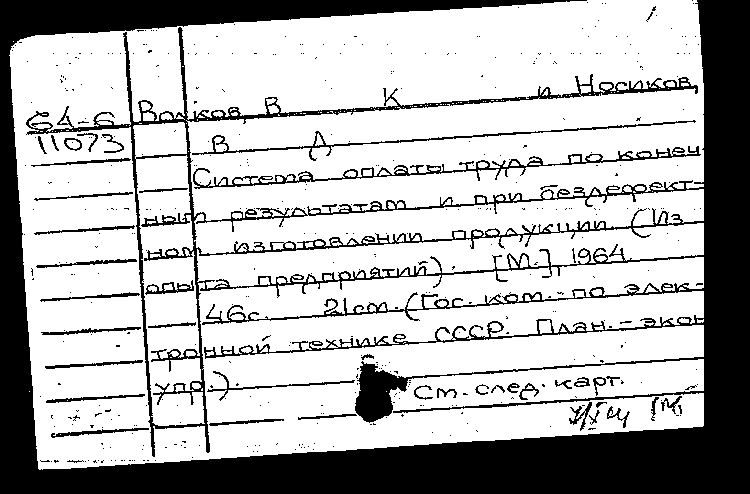 64-6 Волков, В К и Носиков,
11073 В Д
Система оплаты труда по конеч
ным результатам и при бездефект-
ном изготовлении продукции. (Из
опыта предприятий). [М.], 1964.
46с. 21см. (Гос. ком. по элек-
тронной технике СССР. План.-экон
упр.).
См. след. карт.